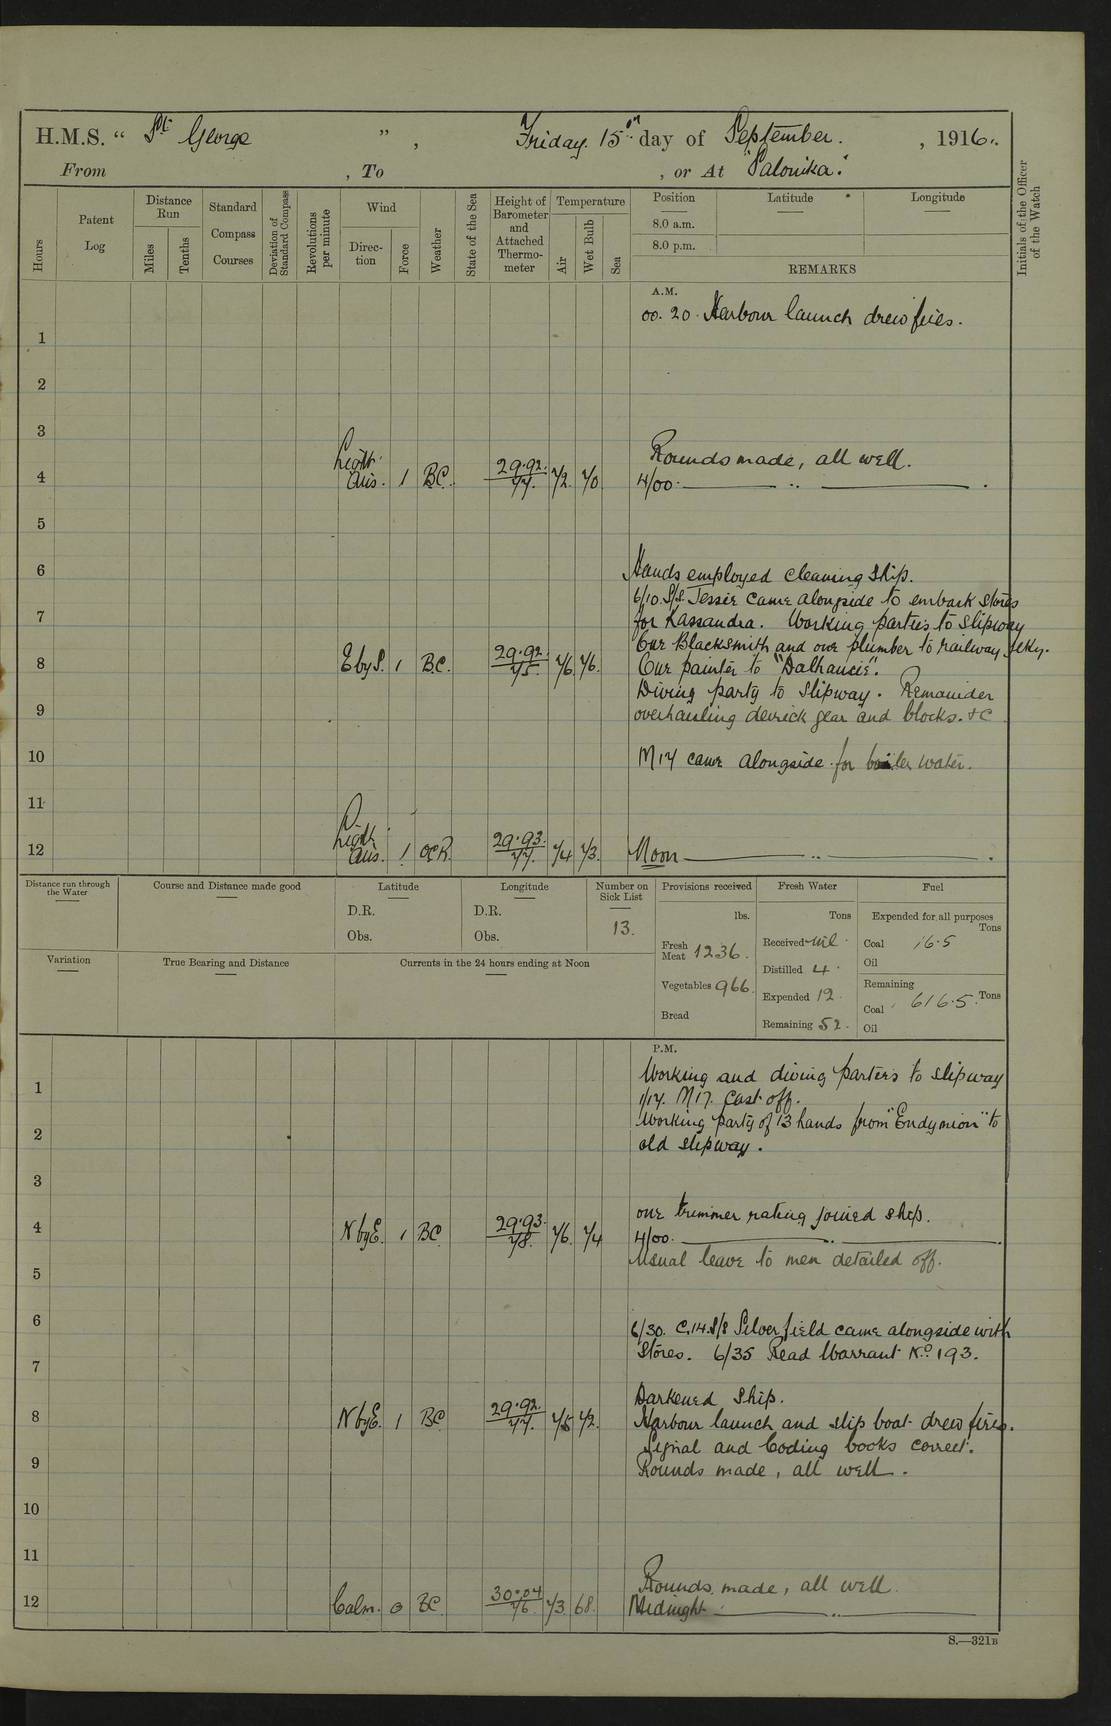 H.M.S. " St George ", Friday 15th day of September. , 1916.
From , To , or At "Salonika".
Hours
Patent Log
Distance Run
Miles
Tenths
Standard Compass Courses
Deviation of Standard Compass
Revolutions per minute
Wind
Direc-tion
Force
Weather
State of the Sea
Height of Barometer and Attached Thermo-meter
Temperature
Air
Wet Bulb
Sea
Position
Latitude
Longitude
8.0 a.m.
8.0 p.m.
REMARKS
Initials of the Officer of the Watch
A.M.
00.20. Harbour launch drew fires.
1
2
3
Rounds made, all well.
4 Light Airs. 1 BC. 29.92. 77. 72. 70 4/00. ..
5
6 Hands employed cleaning ship.
6/10 S/S. Jessie came alongside to embark stores
7 for Kassandra. Working parties to slipway
One Blacksmith and one plumber to railway jetty.
8 E by S. 1 BC. 29.92. 75. 76. 76. One painter to "Dalhancie".
Diving party to slipway. Remainder
9 overhauling derrick gear and blocks. &c
10 M17 came alongside for boiler water.
11
12 Light Airs. 1 OCR. 29.93. 77. 74 73. Noon ..
Distance run through the Water
Course and Distance made good
Latitude
D.R.
Obs.
Longitude
D.R.
Obs.
Number on Sick List
13.
Provisions received
lbs.
Fresh Meat 1236.
Vegetables 966.
Bread
Fresh Water
Tons
Received nil.
Distilled 4.
Expended 12.
Remaining 52.
Fuel
Expended for all purposes
Tons
Coal 16.5
Oil
Remaining
Coal 616.5. Tons
Oil
Variation
True Bearing and Distance
Currents in the 24 hours ending at Noon
P.M.
1 Working and diving parties to slipway
1/17. M17. Cast off.
2 Working party of 13 hands from "Endymion" to
old slipway.
3
one trimmer rating joined ship.
4 N by E. 1 BC 29.93. 78. 76. 74 4/00. ..
5 Usual leave to men detailed off.
6 6/30. C.14. S/S Silverfield came alongside with
7 Stores. 6/35 Read Warrant No. 193.
Darkened Ship.
8 N by E. 1 BC 29.92. 77. 75 72. Harbour launch and slip boat drew fires.
Signal and Coding books correct.
9 Rounds made, all well.
10
11
Rounds made, all well.
12 Calm. 0 BC. 30.04 76. 73 68. Midnight ..
S.—321B